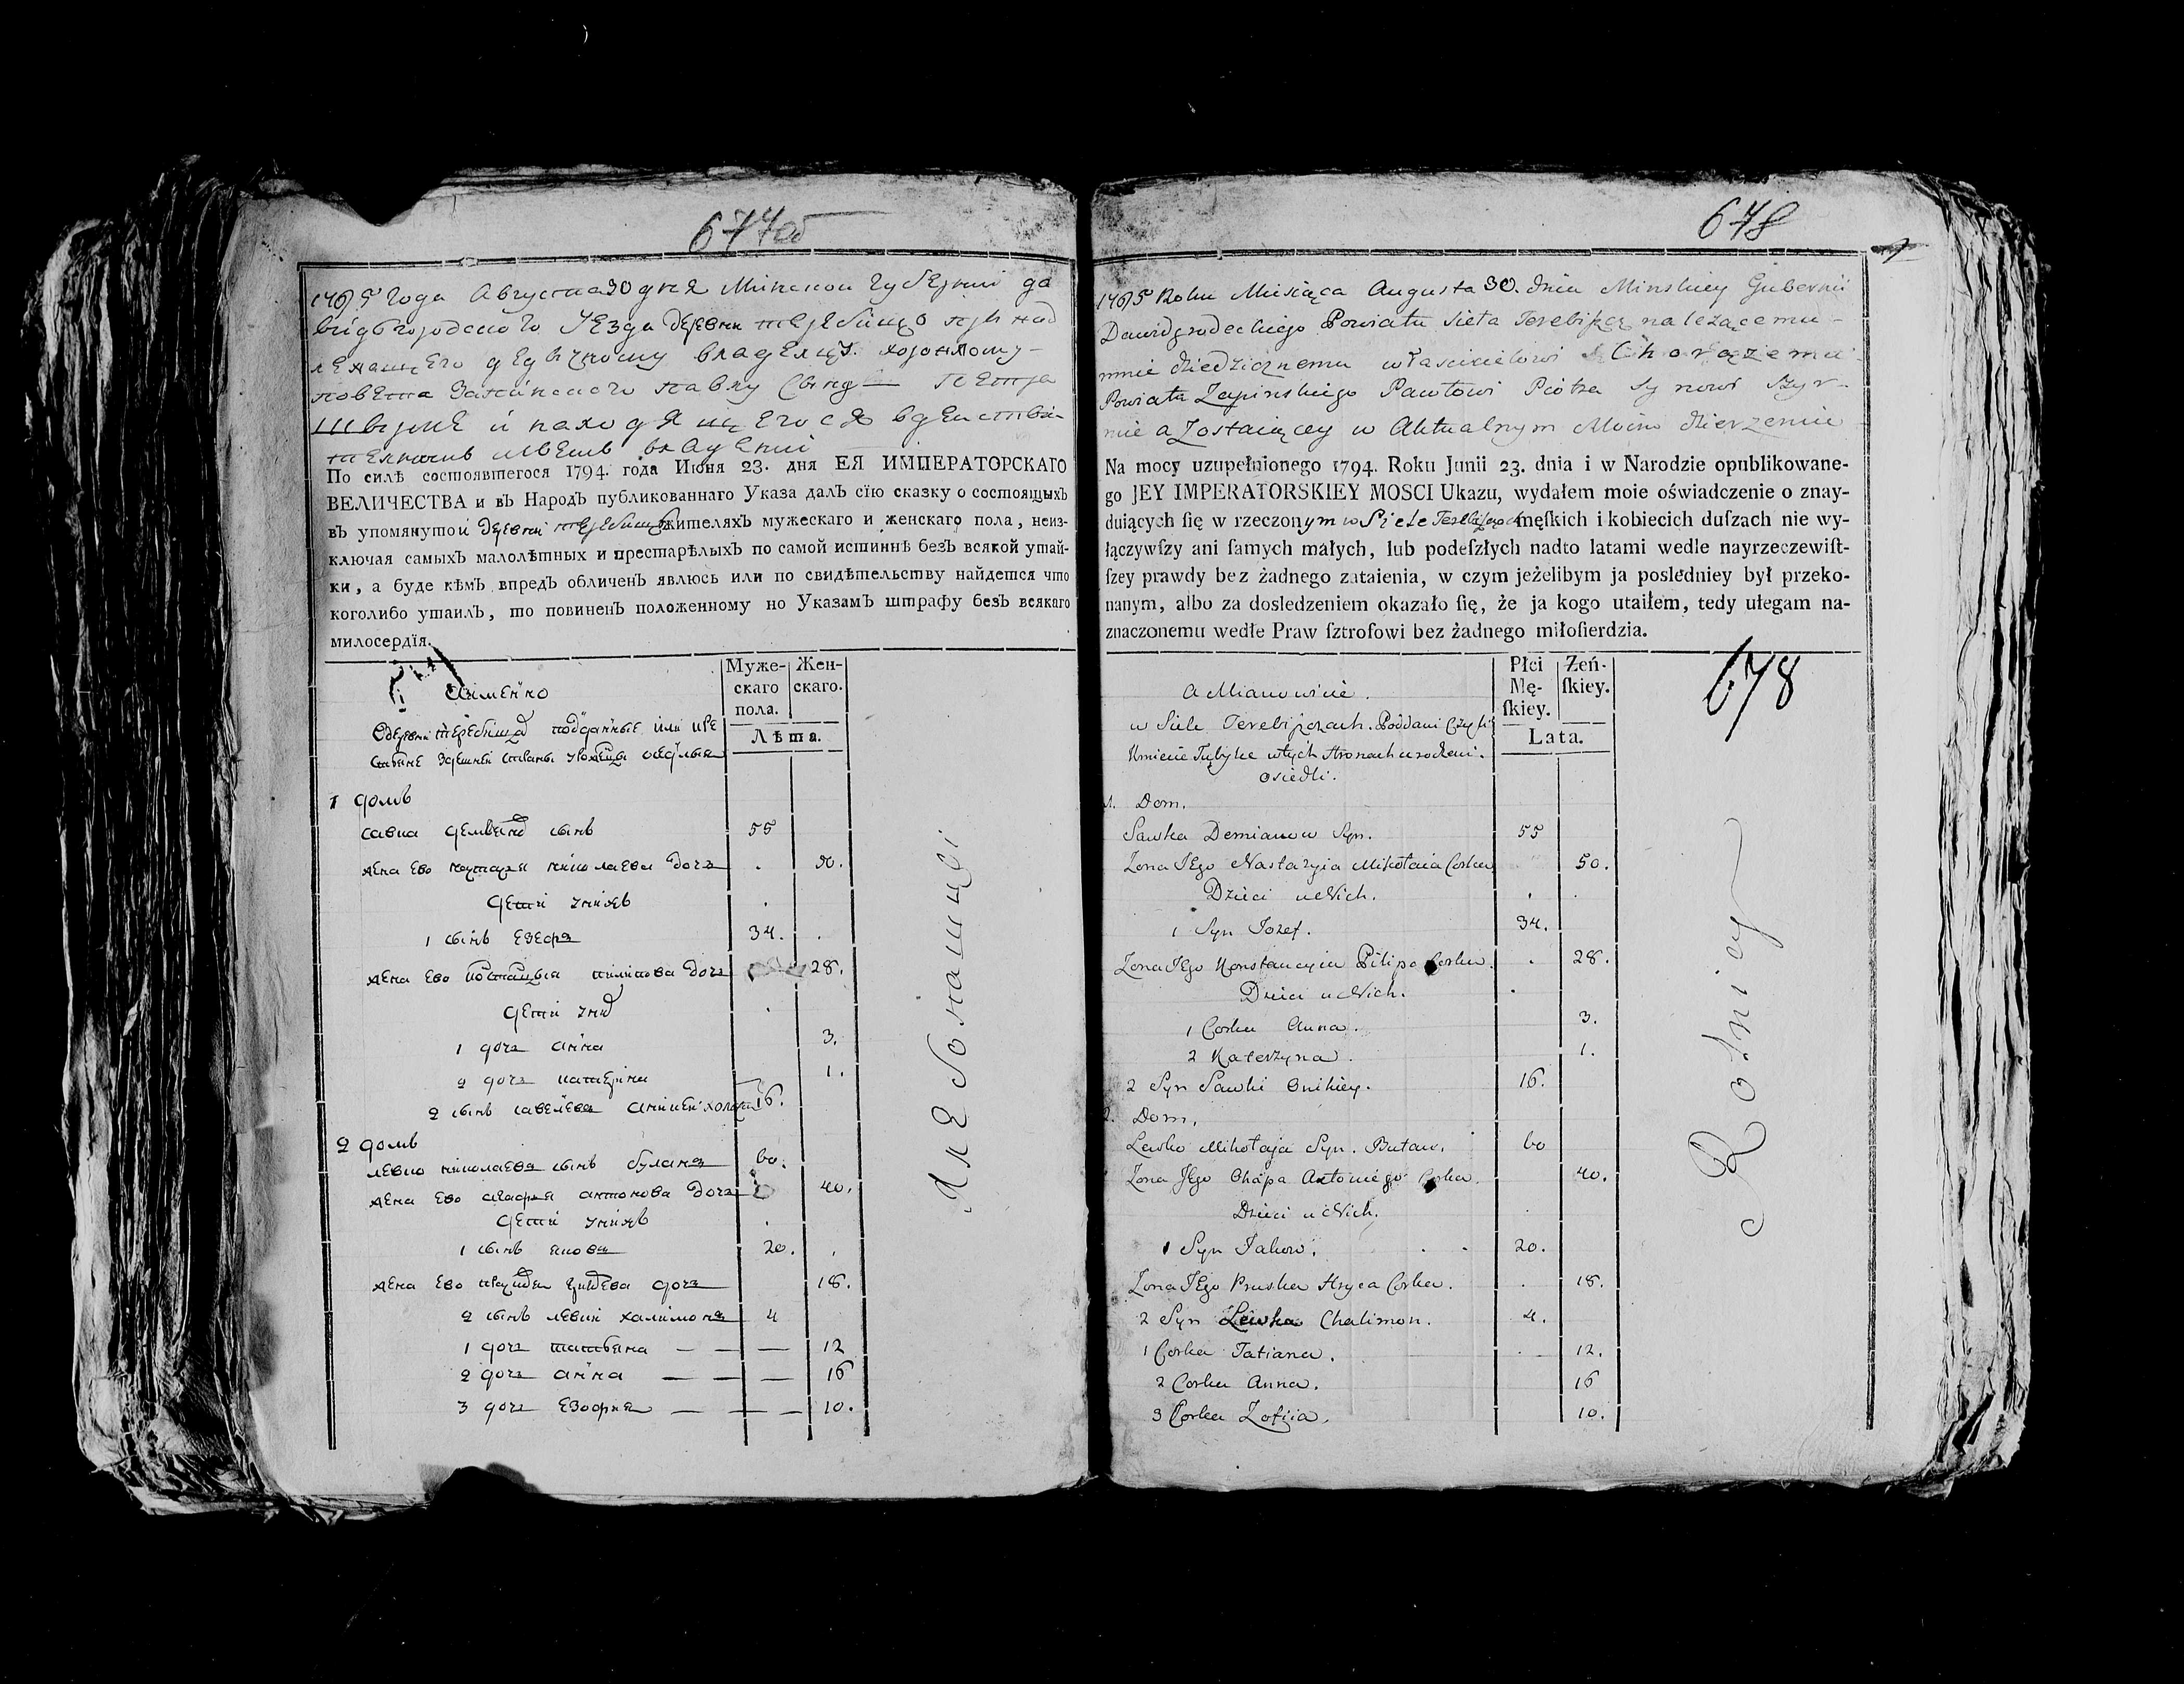 677об
1795 Года Августа 30 дня Минской Губернии да
видгородского уезда деревни теребищо при над
лежащего дедичному владелцу хоронжому
повета Запинского павлу сыну петра
Ширме и находящегося в действи
телном моем владении
По силѣ состоявшегося 1794. года Июня 23. дня ЕЯ ИМПЕРАТОРСКАГО
ВЕЛИЧЕСТВА и въ НародЪ публикованнаго Указа далЪ сїю сказку о состоящыхъ
въ упомянутой деревни теребищо жителяхЪ мужескаго и женскаго пола, неиз-
ключая самыхЪ малолѣтных и престарѣлыхЪ по самой истиннѣ безЪ всякой утай-
ки, а буде кѣмЪ впредЪ обличенЪ явлюсь или по свидѣтельству найдется что
коголибо утаилЪ, то повиненЪ положенному по УказамЪ штрафу безЪ всякаго
милосердїя.
Муже- Жен-
скаго скаго.
пола.
Лѣта.
Аименно
подданные или кре
1 домъ
савка демянов сынъ 55
жена ево настазя николаева дочь 50.
дети у них
1 сынъ езеф 34.
жена ево костанцыя пилипова дочь 28.
дети у них
1 дочь анна 3.
2 дочь катерина 1.
2 сынъ савелев аникей холост 16.
2 домъ
левко николаев сынъ булан 60.
жена ево агафья антонова дочь 40.
дети у них
1 сынъ яков 20.
жена ево дочь 18.
2 сынъ левки халимон 4
1 дочь татьяна 12
2 дочь анна 16
3 дочь езофия 10.
678
1795 Roku Miesiąca Augusta 30. dnia Minskiey Gubernii
Dawidgrodeckiego Powiatu Sieła Terebiszcz należącemu
mnie dziedzicznemu właścicielowi Chorążemu
Powiatu Zapinskiego Pawłowi Piotra Synowi Szyr-
mie a Zostaiącey w Aktualnym Moim dzierzeniu
Na mocy uzupełnionego 1794. Roku Junii 23. dnia i w Narodzie opublikowane-
go JEY IMPERATORSKIEY MOSCI Ukazu, wydałem moie oświadczenie o znay-
duiących ſię w rzeczonym w Siele Terebiszczach męſkich i kobiecich duſzach nie wy-
łączywſzy ani ſamych małych, lub podeſzłych nadto latami wedle nayrzeczewiſt-
ſzey prawdy bez żadnego zataienia, w czym jeżelibym ja posledniey był przeko-
nanym, albo za dosledzeniem okazało ſię, że ja kogo utaiłem, tedy ulegam na-
znaczonemu wedle Praw ſztrofowi bez żadnego miłoſierdzia.
Płci Zeń-
Mę- ſkiey.
ſkiey.
Lata.
678
A Mianowicie.
w Siele Terebiszczach. Poddani Czyli
Kmiecie Tubylce w tych Stronach urodzeni.
osiedli.
1. Dom.
Sawka Demianow Syn. 55
Zona JEgo Nastazyia Mikołaia Corka 50.
Dzieci u Nich.
1 Syn Jozef. 34.
Zona JEgo Konstancyia Pilipa Corka. 28.
Dzieci u Nich.
1 Corka Anna. 3.
2 Katerzyna. 1.
2 Syn Sawki Onikiey. 16.
2. Dom.
Lewko Mikołaja Syn. Bułan. 60
Zona JEgo Ohapa Antoniego Corka. 40.
Dzieci u Nich.
1 Syn Jakow. 20.
Zona JEgo Pruska Hryca Corka. 18.
2 Syn Lewka Chalimon. 4.
1 Corka Tatiana. 12.
2 Corka Anna. 16
3 Corka Zofiia. 10.